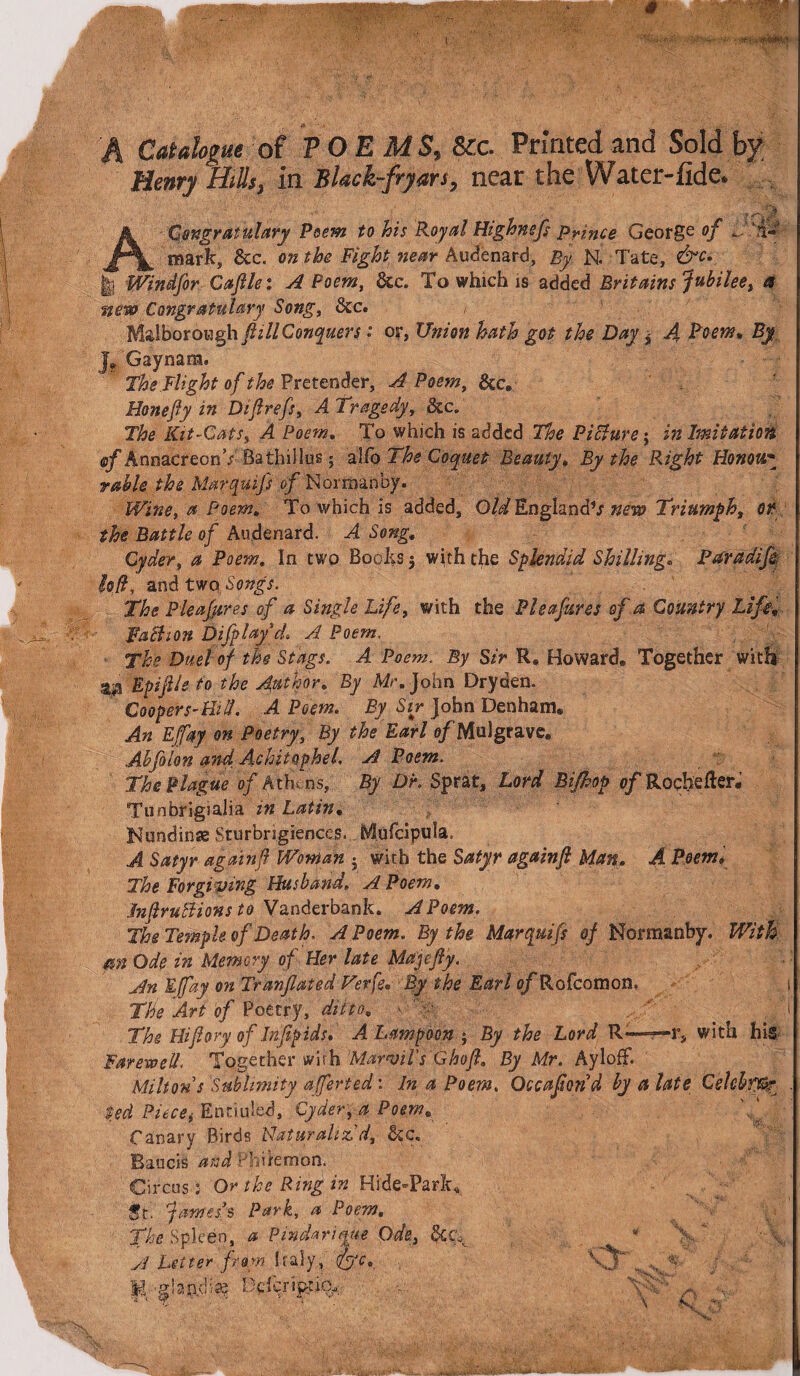 A Catalogue of POEMS, &c. Printed and Sold by
Henry Hills, in Black-fryars, near the Water-ſide.
A Congratulary Poem to his Royal Highneſs Prince George of
mark, &c. on the Fight near Audenard, By N. Tate, &c.
Windſor Caſtle: A Poem, &c. To which is added Britains Jubilee, a
new Congratulary Song, &c.
Malborough ſtill Conquers: or, Union hath got the Day; A Poem. By
J. Gaynam.
The Flight of the Pretender, A Poem, &c.
Honeſty in Diſtreſs, A Tragedy, &c.
The Kit-Cats, A Poem. To which is added The Picture; in Imitation
of Annacreon's Bathillus; alſo The Coquet Beauty. By the Right Honou-
rable the Marquiſs of Normanby.
Wine, a Poem. To which is added, Old England's new Triumph, or
the Battle of Audenard. A Song.
Cyder, a Poem. In two Books; with the Splendid Shilling. Paradiſe
loſt, and two Songs.
The Pleaſures of a Single Life, with the Pleaſures of a Country Life.
Faction Diſplay'd. A Poem.
The Duel of the Stags. A Poem. By Sir R. Howard. Together with
an Epiſtle to the Author. By Mr. John Dryden.
Coopers-Hill. A Poem. By Sir John Denham.
An Eſſay on Poetry, By the Earl of Mulgrave.
Abſolon and Achitophel. A Poem.
The Plague of Athens, By Dr. Sprat, Lord Biſhop of Rocheſter.
Tunbrigialia in Latin.
Nundinæ Sturbrigiences. Muſcipula.
A Satyr againſt Woman; with the Satyr againſt Man. A Poem.
The Forgiving Husband, A Poem.
Inſtructions to Vanderbank. A Poem.
The Temple of Death. A Poem. By the Marquiſs of Normanby. With
an Ode in Memory of Her late Majeſty.
An Eſſay on Tranſlated Verſe. By the Earl of Roſcomon.
The Art of Poetry, ditto.
The Hiſtory of Inſipids. A Lampoon; By the Lord R——r, with his
Farewell. Together with Marvil's Ghoſt. By Mr. Ayloff.
Milton's Sublimity aſſerted: In a Poem. Occaſion'd by a late Celebra-
ted Piece, Entiuled, Cyder, a Poem.
Canary Birds Naturaliz'd, &c.
Baucis and Philemon.
Circus; Or the Ring in Hide-Park.
St. James's Park, a Poem.
The Spleen, a Pindarique Ode, &c.
A Letter from Italy, &c.
Hoglandiæ Deſcriptio.